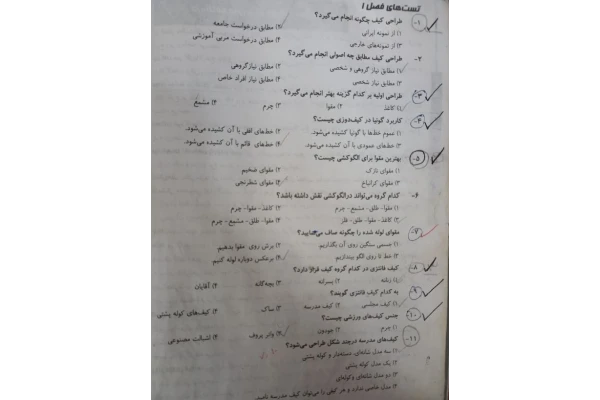 تست‌های فصل ۱
۱- طراحی کیف چگونه انجام می‌گیرد؟
۱) از نمونه ایرانی ۲) مطابق درخواست جامعه
۳) از نمونه‌های خارجی ۴) مطابق درخواست مربی آموزشی
۲- طراحی کیف مطابق چه اصولی انجام می‌گیرد؟
۱) مطابق نیاز گروهی و شخصی ۲) مطابق نیاز گروهی
۳) مطابق نیاز شخصی ۴) مطابق نیاز افراد خاص
۳- طراحی اولیه بر کدام گزینه بهتر انجام می‌گیرد؟
۱) کاغذ ۲) مقوا ۳) چرم ۴) مشمع
۴- کاربرد گونیا در کیف‌دوزی چیست؟
۱) عموم خط‌ها با گونیا کشیده می‌شود. ۲) خط‌های افقی با آن کشیده می‌شود.
۳) خط‌های عمودی با آن کشیده می‌شود. ۴) خط‌های قائم با آن کشیده می‌شود.
۵- بهترین مقوا برای الگوکشی چیست؟
۱) مقوای نازک ۲) مقوای ضخیم
۳) مقوای گراتباخ ۴) مقوای شطرنجی
۶- کدام گروه می‌تواند در الگوکشی نقش داشته باشد؟
۱) مقوا- طلق- مشمع- چرم ۲) کاغذ- مقوا- چرم
۳) کاغذ- مقوا- طلق- فلز ۴) مقوا- طلق- مشمع- چرم
۷- مقوای لوله شده را چگونه صاف می‌نمایید؟
۱) جسمی سنگین روی آن بگذاریم. ۲) برش روی مقوا بدهیم.
۳) خط تا روی الگو بیندازیم. ۴) برعکس دوباره لوله کنیم.
۸- کیف فانتزی در کدام گروه کیف قرار دارد؟
۱) زنانه ۲) پسرانه ۳) بچه‌گانه ۴) آقایان
۹- به کدام کیف فانتزی گویند؟
۱) کیف مجلسی ۲) کیف مدرسه ۳) ساک ۴) کیف‌های کوله پشتی
۱۰- جنس کیف‌های ورزشی چیست؟
۱) چرم ۲) جودون ۳) واتر پروف ۴) اشبالت مصنوعی
۱۱- کیف‌های مدرسه در چند شکل طراحی می‌شود؟
۱) سه مدل شانه‌ای، دسته‌دار و کوله پشتی
۲) یک مدل کوله پشتی
۳) دو مدل شانه‌ای و کوله‌ای
۴) مدل خاصی ندارد و هر کیفی را می‌توان کیف مدرسه نامید.